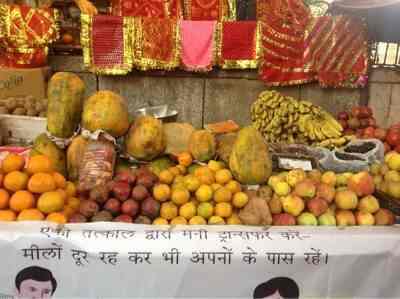 एको तत्काल द्वारा मनी ट्रान्सफर करें-
मीलों दूर रह कर भी अपनों के पास रहें।